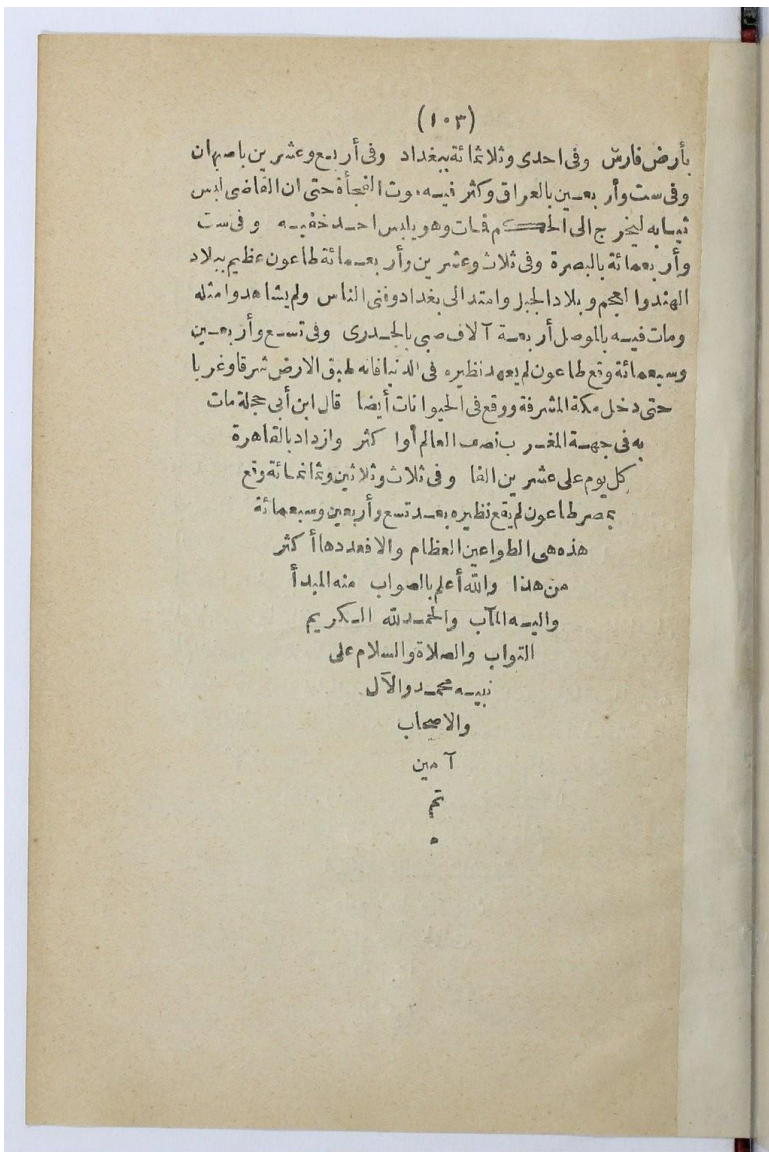 (١٠٣)
بأرض فارس وفى احدى وثلاثمائة ببغداد وفى أربع وعشرين باصبهان
وفى ست وأربعين بالعراق وكثر فيه موت الفجأة حتى ان القاضى لبس
ثيابه ليخرج الى الحكم فمات وهو يلبس احد خفيه وفى ست
وأربعمائة بالبصرة وفى ثلاث وعشرين وأربعمائة طاعون عظيم ببلاد
الهند والعجم وبلاد الجبل وامتد الى بغداد وفنى الناس ولم يشاهدوا مثله
ومات فيه بالموصل أربعة آلاف صبى بالجدرى وفى تسع وأربعين
وسبعمائة وقع طاعون لم يعهد نظيره فى الدنيا فانه طبق الارض شرقا وغربا
حتى دخل مكة المشرفة ووقع فى الحيوانات أيضا قال ابن أبى حجلة مات
به فى جهة المغرب نصف العالم أو اكثر وازداد بالقاهرة
كل يوم على عشرين الفا وفى ثلاث وثلاثين وثمانمائة وقع
بمصر طاعون لم يقع نظيره بعد تسع وأربعين وسبعمائة
هذه هى الطواعين العظام والا فعددها أكثر
من هذا والله أعلم بالصواب منه المبدأ
واليه المآب والحمد لله الكريم
التواب والصلاة والسلام على
نبيه محمد والآل
والاصحاب
آمين
تم